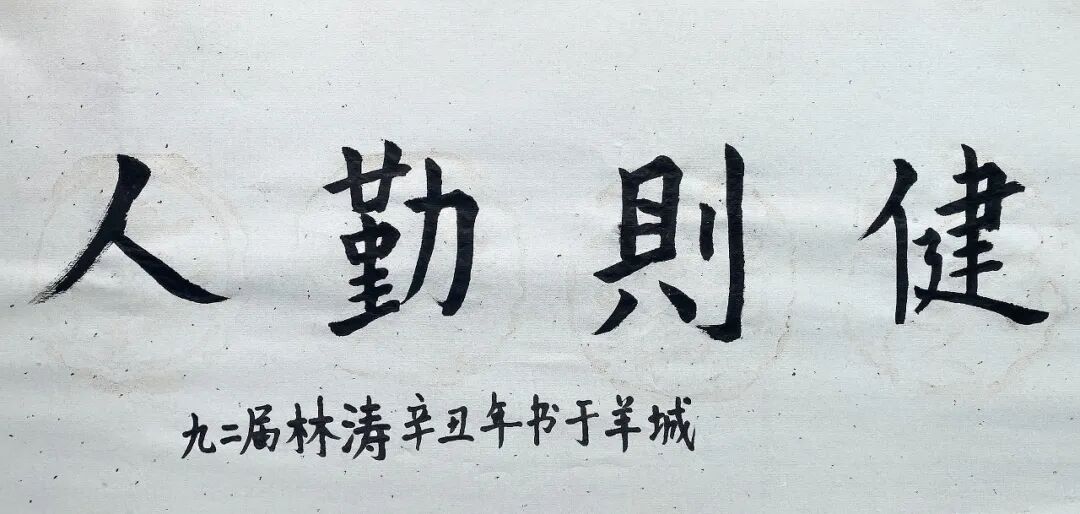 人勤則健
九二届林涛辛丑年书于羊城